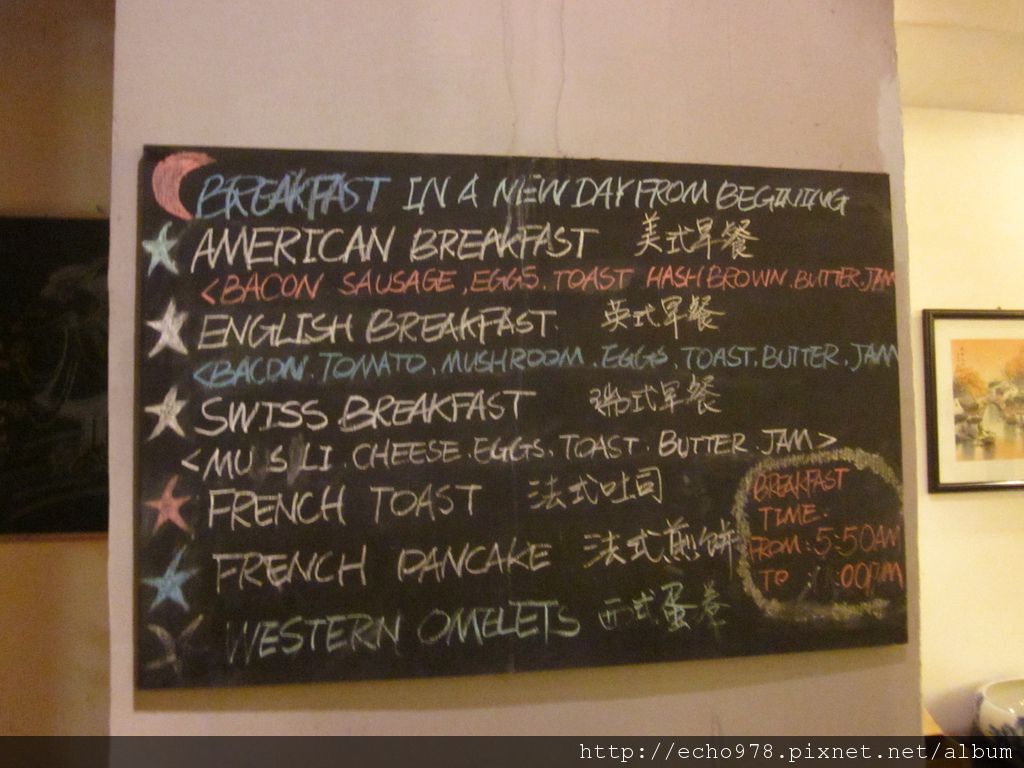 BREAKFAST IN A NEW DAY FROM BEGINING
AMERICAN BREAKFAST 美式早餐
<BACON SAUSAGE, EGGS. TOAST HASH BROWN. BUTTER. JAM
ENGLISH BREAKFAST. 英式早餐
<BACON. TOMATO, MUSHROOM. EGGS, TOAST, BUTTER, JAM
SWISS BREAKFAST 瑞式早餐
<MUSLI. CHEESE. EGGS, TOAST. BUTTER. JAM>
FRENCH TOAST 法式吐司
FRENCH PANCAKE 法式煎饼
WESTERN OMELETS 西式蛋卷
BREAKFAST
TIME.
FROM: 5:50AM
TO :00PM
http://echo978.pixnet.net/album